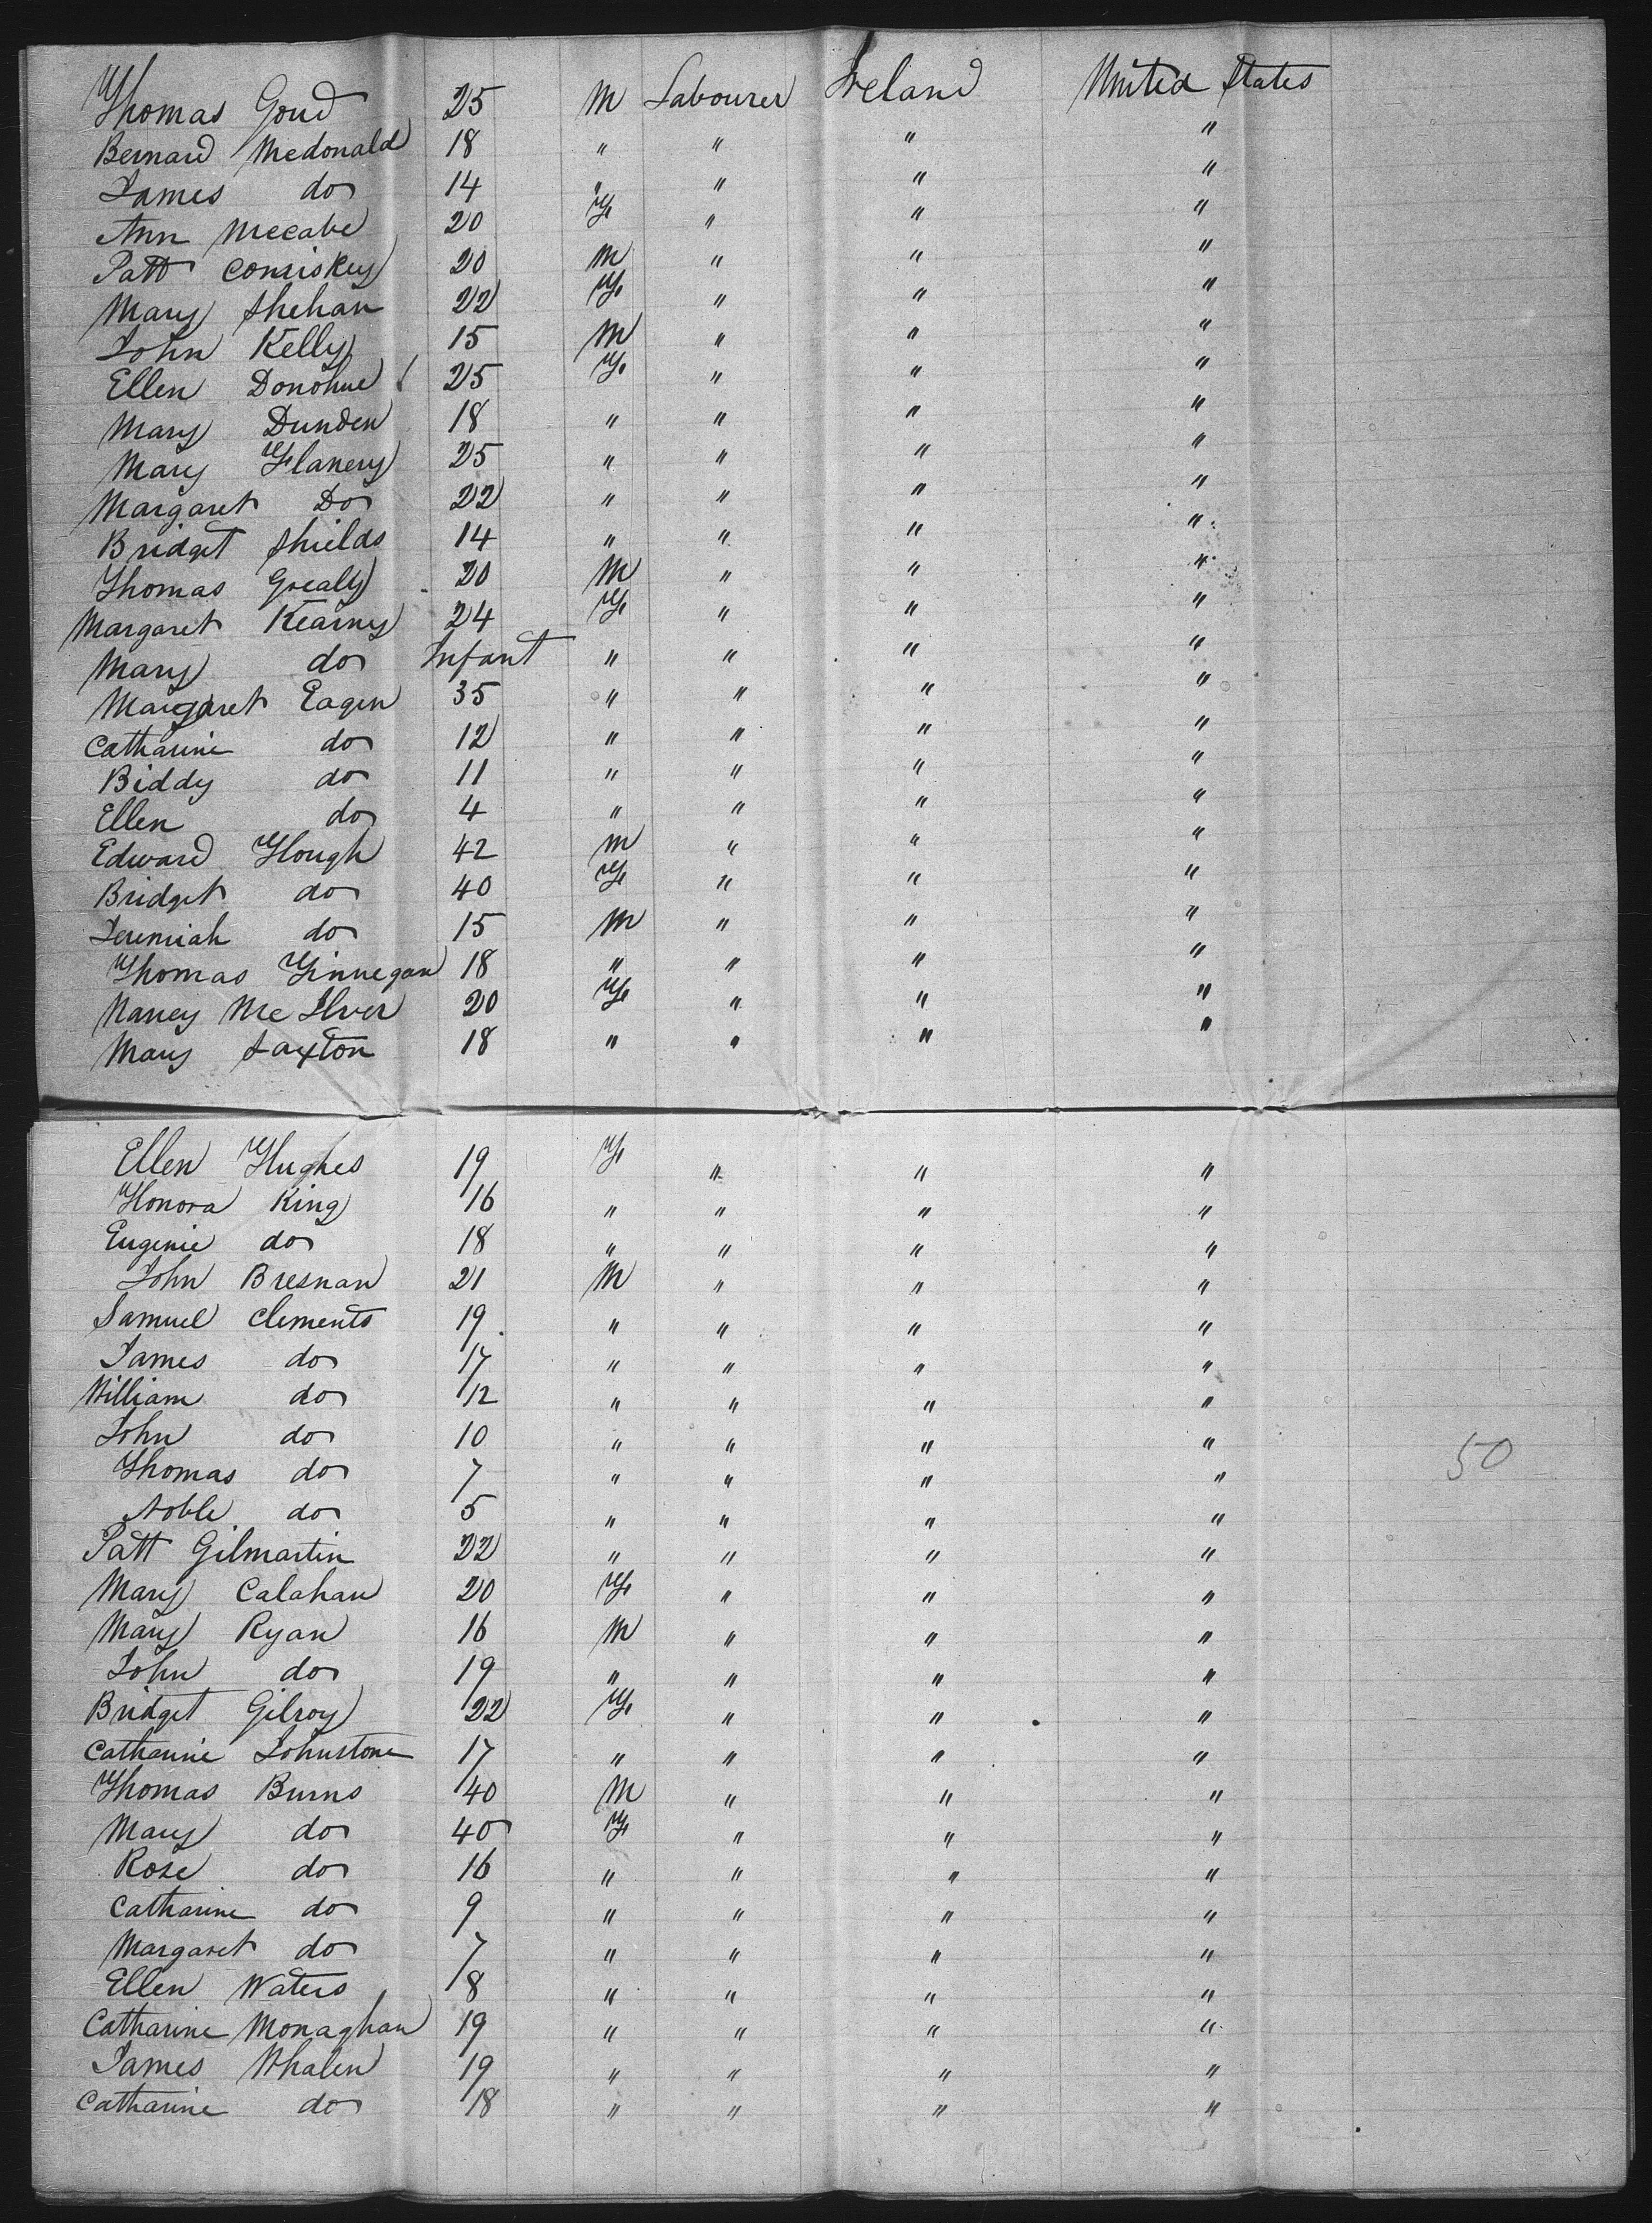 Thomas Goud 25 M Labourer Ireland United States
Bernard Mcdonald 18 " " " "
James do 14 " " " "
Ann Mccabe 20 F " " "
Patt Comiskey 20 M " " "
Mary Shehan 22 F " " "
John Kelly 15 M " " "
Ellen Donohue 25 F " " "
Mary Dunden 18 " " " "
Mary Flanery 25 " " " "
Margaret Do 22 " " " "
Bridget Shields 14 " " " "
Thomas Grealy 20 M " " "
Margaret Kearney 24 F " " "
Mary do Infant " " " "
Margaret Eagen 35 " " " "
Catharine do 12 " " " "
Biddy do 11 " " " "
Ellen do 4 " " " "
Edward Hough 42 M " " "
Bridget do 40 F " " "
Jeremiah do 15 M " " "
Thomas Finnegan 18 " " " "
Nancy Mc Ilver 20 F " " "
Mary Saxton 18 " " " "
Ellen Hughes 19 F " " "
Honora King 16 " " " "
Eugenie do 18 " " " "
John Bresnan 21 M " " "
Samuel Clements 19 " " " "
James do 17 " " " "
William do 12 " " " "
John do 10 " " " "
50
Thomas do 7 " " " "
Noble do 5 " " " "
Patt Gilmartin 22 " " " "
Mary Calahan 20 F " " "
Mary Ryan 16 M " " "
John do 19 " " " "
Bridget Gilroy 22 F " " "
Catharine Johnstone 17 " " " "
Thomas Burns 40 M " " "
Mary do 40 F " " "
Rose do 16 " " " "
Catharine do 9 " " " "
Margaret do 7 " " " "
Ellen Waters 18 " " " "
Catharine Monaghan 19 " " " "
James Whalen 19 " " " "
Catharine do 18 " " " "